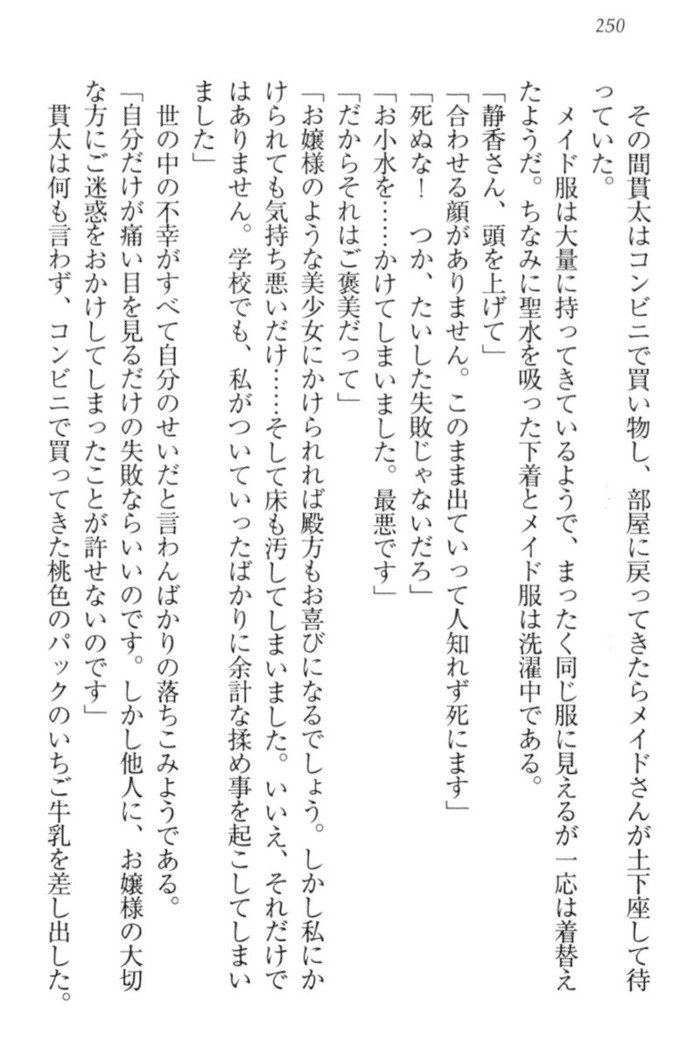 250
その間貫太はコンビニで買い物し、部屋に戻ってきたらメイドさんが土下座して待
っていた。
メイド服は大量に持ってきているようで、まったく同じ服に見えるが一応は着替え
たようだ。ちなみに聖水を吸った下着とメイド服は洗濯中である。
「静香さん、頭を上げて」
「合わせる顔がありません。このまま出ていって人知れず死にます」
「死ぬな！　つか、たいした失敗じゃないだろ」
「お小水を……かけてしまいました。最悪です」
「だからそれはご褒美だって」
「お嬢様のような美少女にかけられれば殿方もお喜びになるでしょう。しかし私にか
けられても気持ち悪いだけ……そして床も汚してしまいました。いいえ、それだけで
はありません。学校でも、私がついていったばかりに余計な揉め事を起こしてしまい
ました」
世の中の不幸がすべて自分のせいだと言わんばかりの落ちこみようである。
「自分だけが痛い目を見るだけの失敗ならいいのです。しかし他人に、お嬢様の大切
な方にご迷惑をおかけしてしまったことが許せないのです」
貫太は何も言わず、コンビニで買ってきた桃色のパックのいちご牛乳を差し出した。